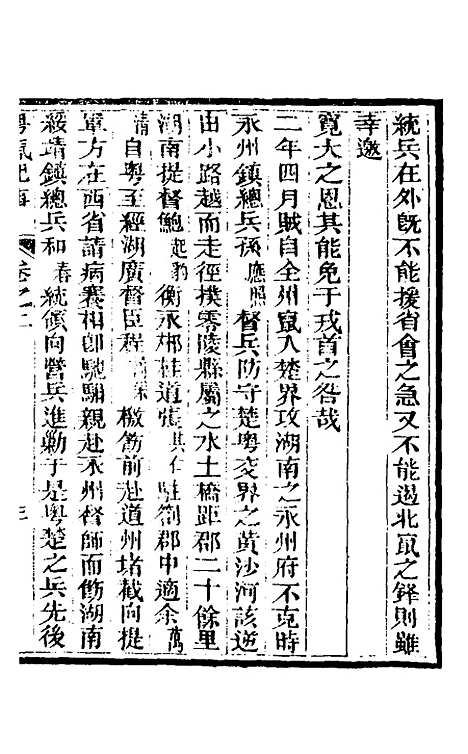 統兵在外旣不能援省會之急又不能遏北竄之鋒則雖
幸邀
寬大之恩其能免于戎首之咎哉
二年四月賊自全州竄入楚界攻湖南之永州府不克時
永州鎮總兵孫應照督兵防守楚粤交界之黃沙河該逆
由小路越而走徑撲零陵縣屬之水土橋距郡二十餘里
湖南提督鮑起豹衡永郴桂道張其仁駐劄郡中適余萬
清自粤至經湖廣督臣程 檄飭前赴道州堵截向提
軍方在西省請病襄相卽馳騆親赴永州督師而飭湖南
綏靖鎮總兵和春統領向營兵進勦于是粤楚之兵先後
粤氛紀事 卷之二 三